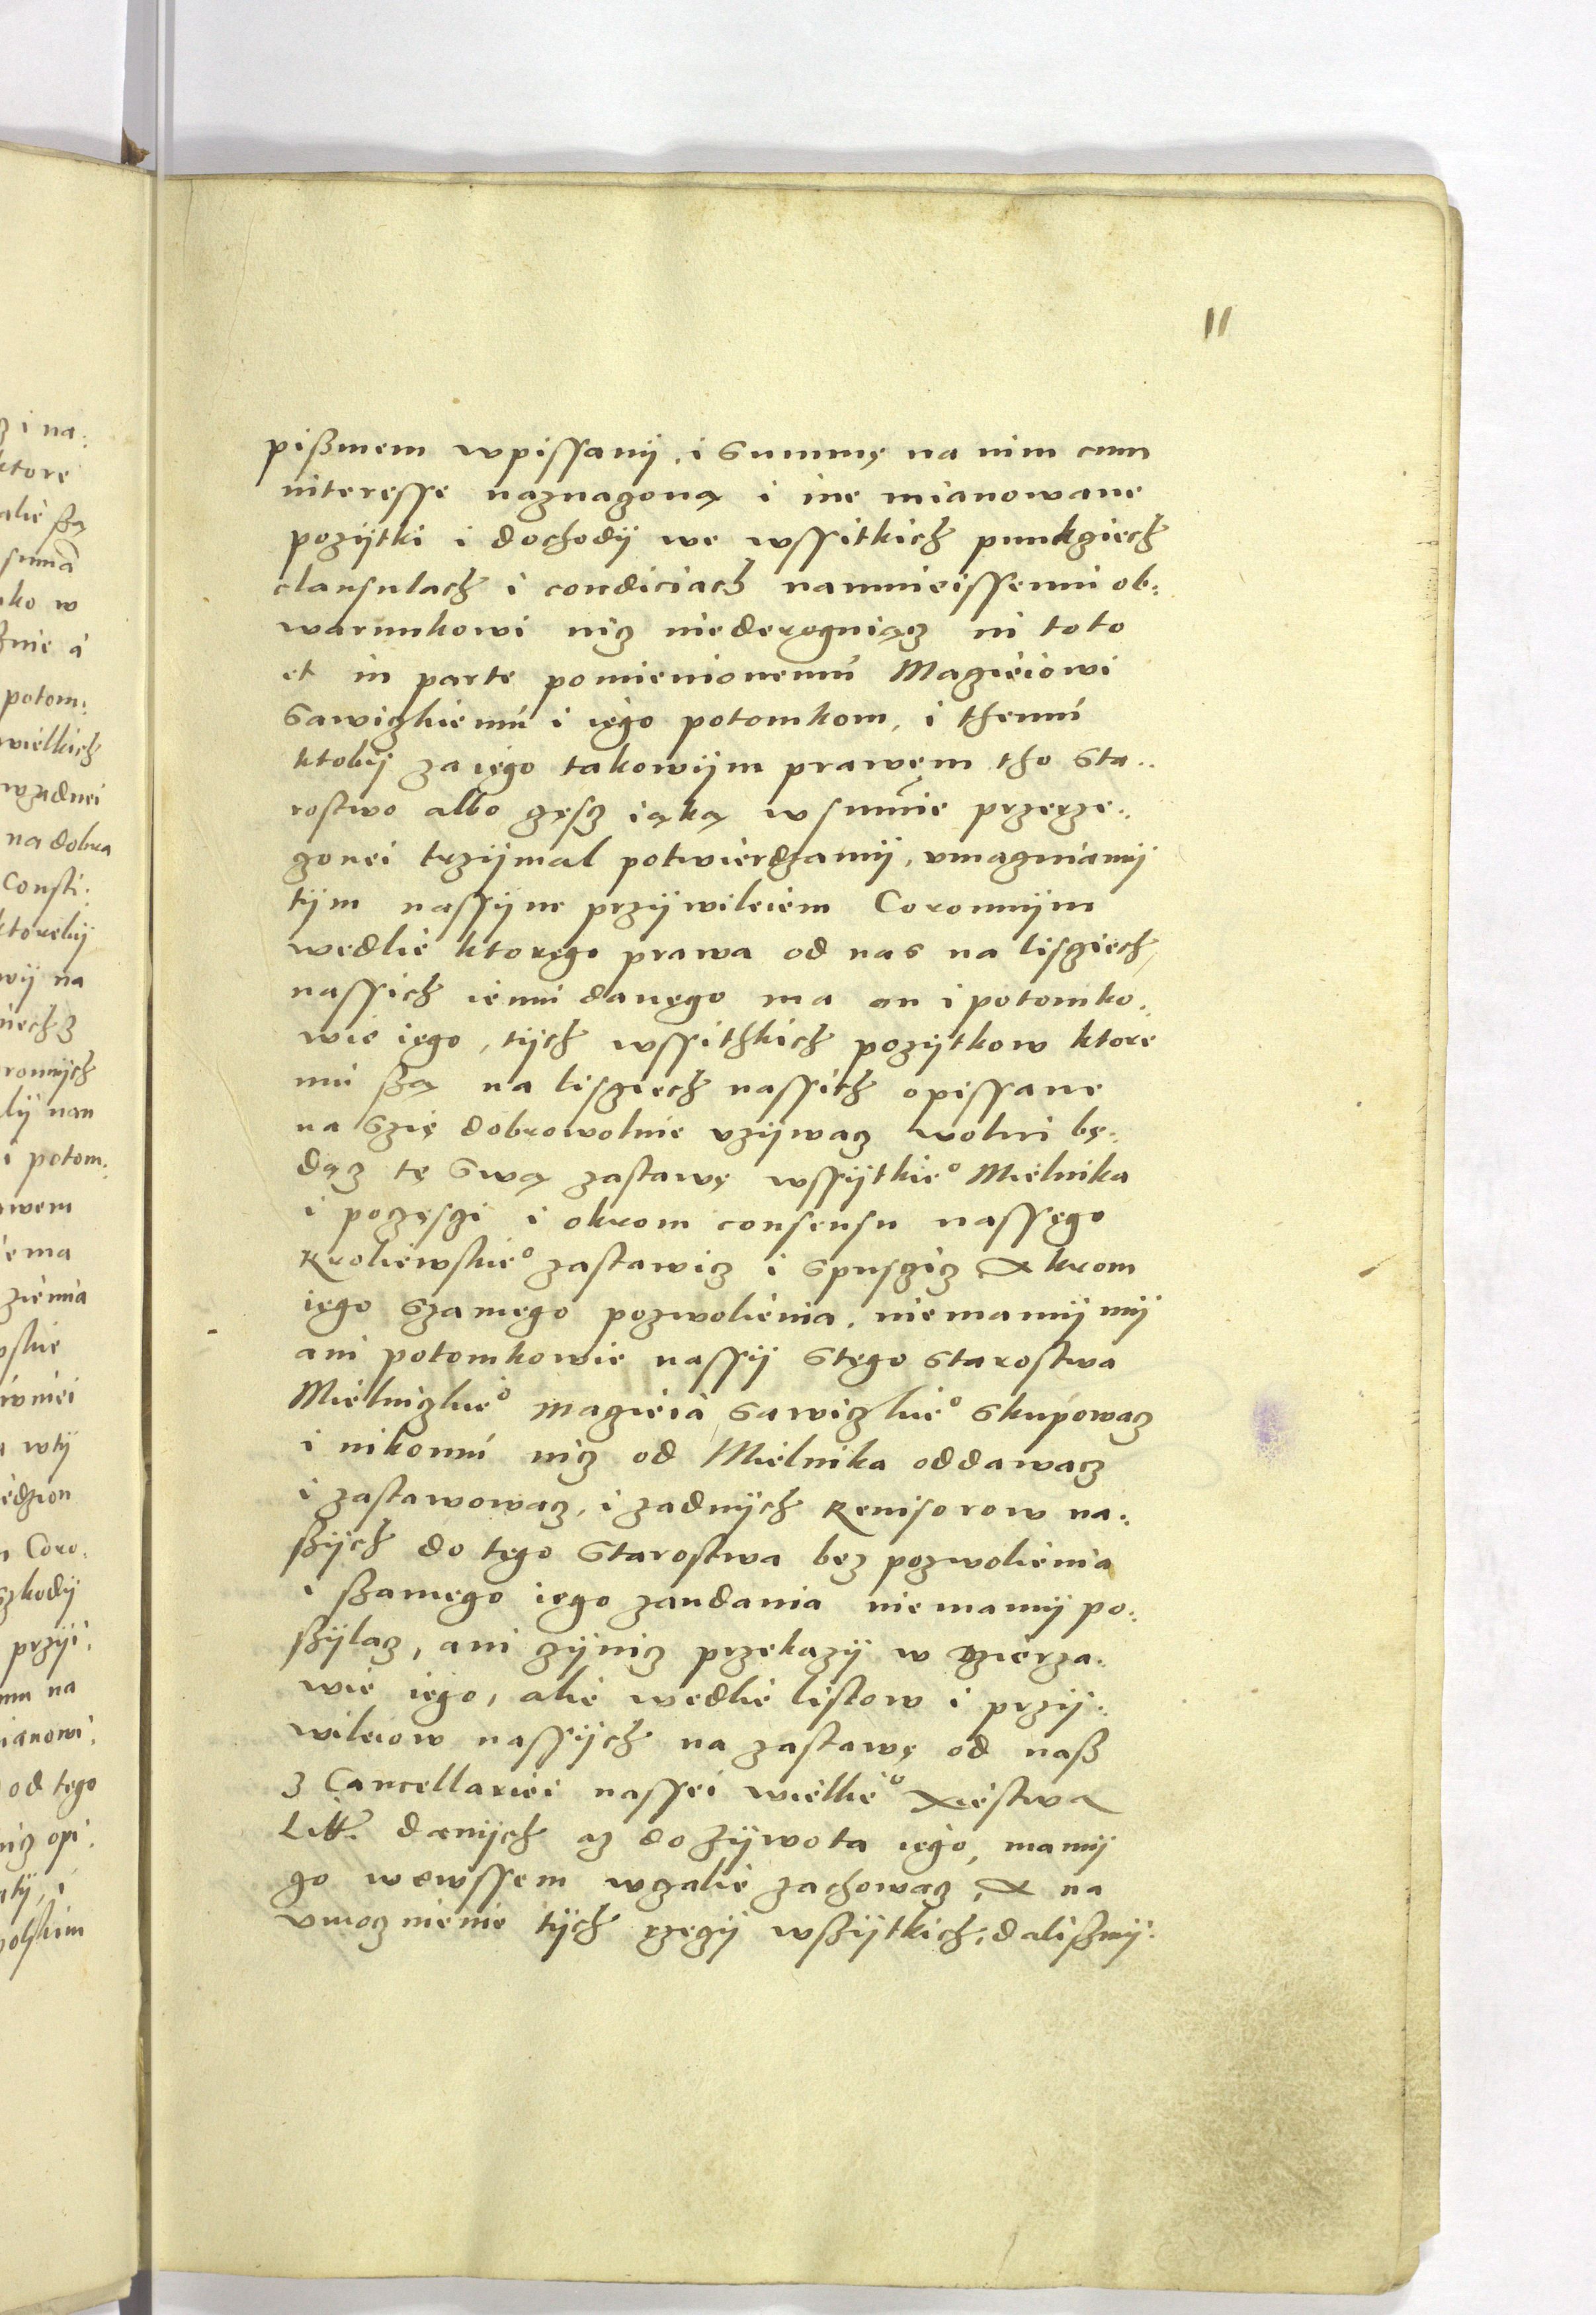 11
pißmem wpissanÿ, i Summę na nim cum
interesse naznaczoną i ine mianowane
pozÿtki i dochodÿ we wssitkich punkciech
clausulach i condiciach namnieissemu ob:
warunkowi nicz niederoguiącz in toto
et in parte pomienionemú Maczieiowi
Sawiczkiemú i iego potomkom, i themú
ktobÿ za iego takowÿm prawem tho Sta:
rostwo albo częscz iąką w summie przerze:
czonei trzÿmal potwierdzamÿ, umacniamÿ
tÿm nassÿm przÿwileiem Coronnÿm
wedlie ktorego prawa od nas na lisciech
nassich iemú danego ma on i potomko:
wie iego, tÿch wssithkich pozÿtkow ktore
mú ßą na lisciech nassich opissane
na Szię dobrowolnie uzÿwacz wolni bę:
dącz tę Swą zastawę wssÿtkie° Mielnika
i poczęsci i okrom consensu nassego
Kroliewskie° zastawicz i Spusczicz, A krom
iego Szamego pozwolienia, niemamÿ mÿ
ani potomkowie nassÿ Stego Starostwa
Mielniczkie° Macieia Sawiczkie° Skupowacz
i nikomú nicz od Mielnika oddawacz
i zastawowacz, i zadnÿch Reuisorow na:
ßÿch do tego Starostwa bez pozwolienia
i ßamego iego zandania niemamÿ po:
ßÿlacz, ani czÿnicz przekazÿ w dzierza:
wie iego, alie wedlie listow i przÿ:
wileiow nassÿch na zastawę od naß
z Cancellariei nassei wielkie° Xięstwa
Litt. danÿch az do Zÿwota iego, mamÿ
go wewssem wcalie zachowacz, A na
umocznienie tÿch rzeczÿ wßÿtkich, dalißmÿ: